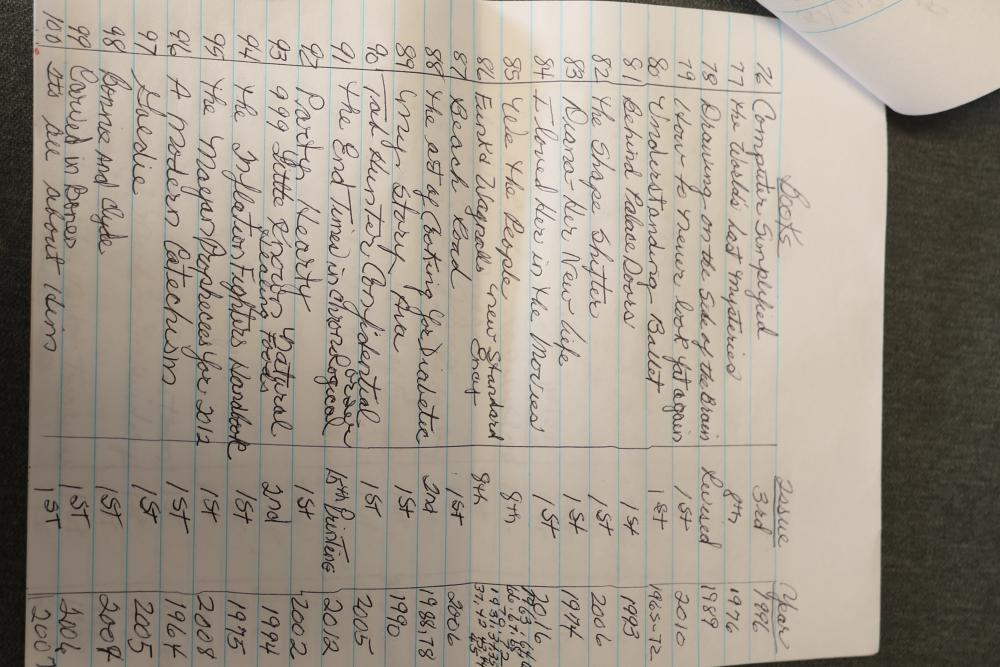 Books Issue Year
76 Computer Simplified 3rd 1996
77 The World's Last Mysteries 8th 1976
78 Drawing on the Side of the Brain Revised 1989
79 How to never look fat again 1st 2010
80 Understanding Ballet 1st 1965-72
81 Behind Palace Doors 1st 1993
82 The Shape Shifter 1st 2006
83 Diana-Her New Life 1st 1974
84 I loved Her in the Movies 1st 2016
85 We The People 8th
86 Funk & Wagnalls new Standard 9th
87 Beach Road 1st 2006
88 The art of Cooking for Diabetic 2nd 1988,78
89 My Story 1st 1990
90 Tab Hunter Confidential 1st 2005
91 The End Times in chronological order 15th Printing 2012
92 Party Hearty 1st 2002
93 999 little known natural healing foods 2nd 1994
94 The Inflation Fighters Handbook 1st 1975
95 The Mayan Prophecies for 2012 1st 2008
96 A modern Catechism 1st 1964
97 1st 2005
98 Bonnie and Clyde 1st 2004
99 Carved in Bones 1st 2006
100 It's all about Him 1st 2007